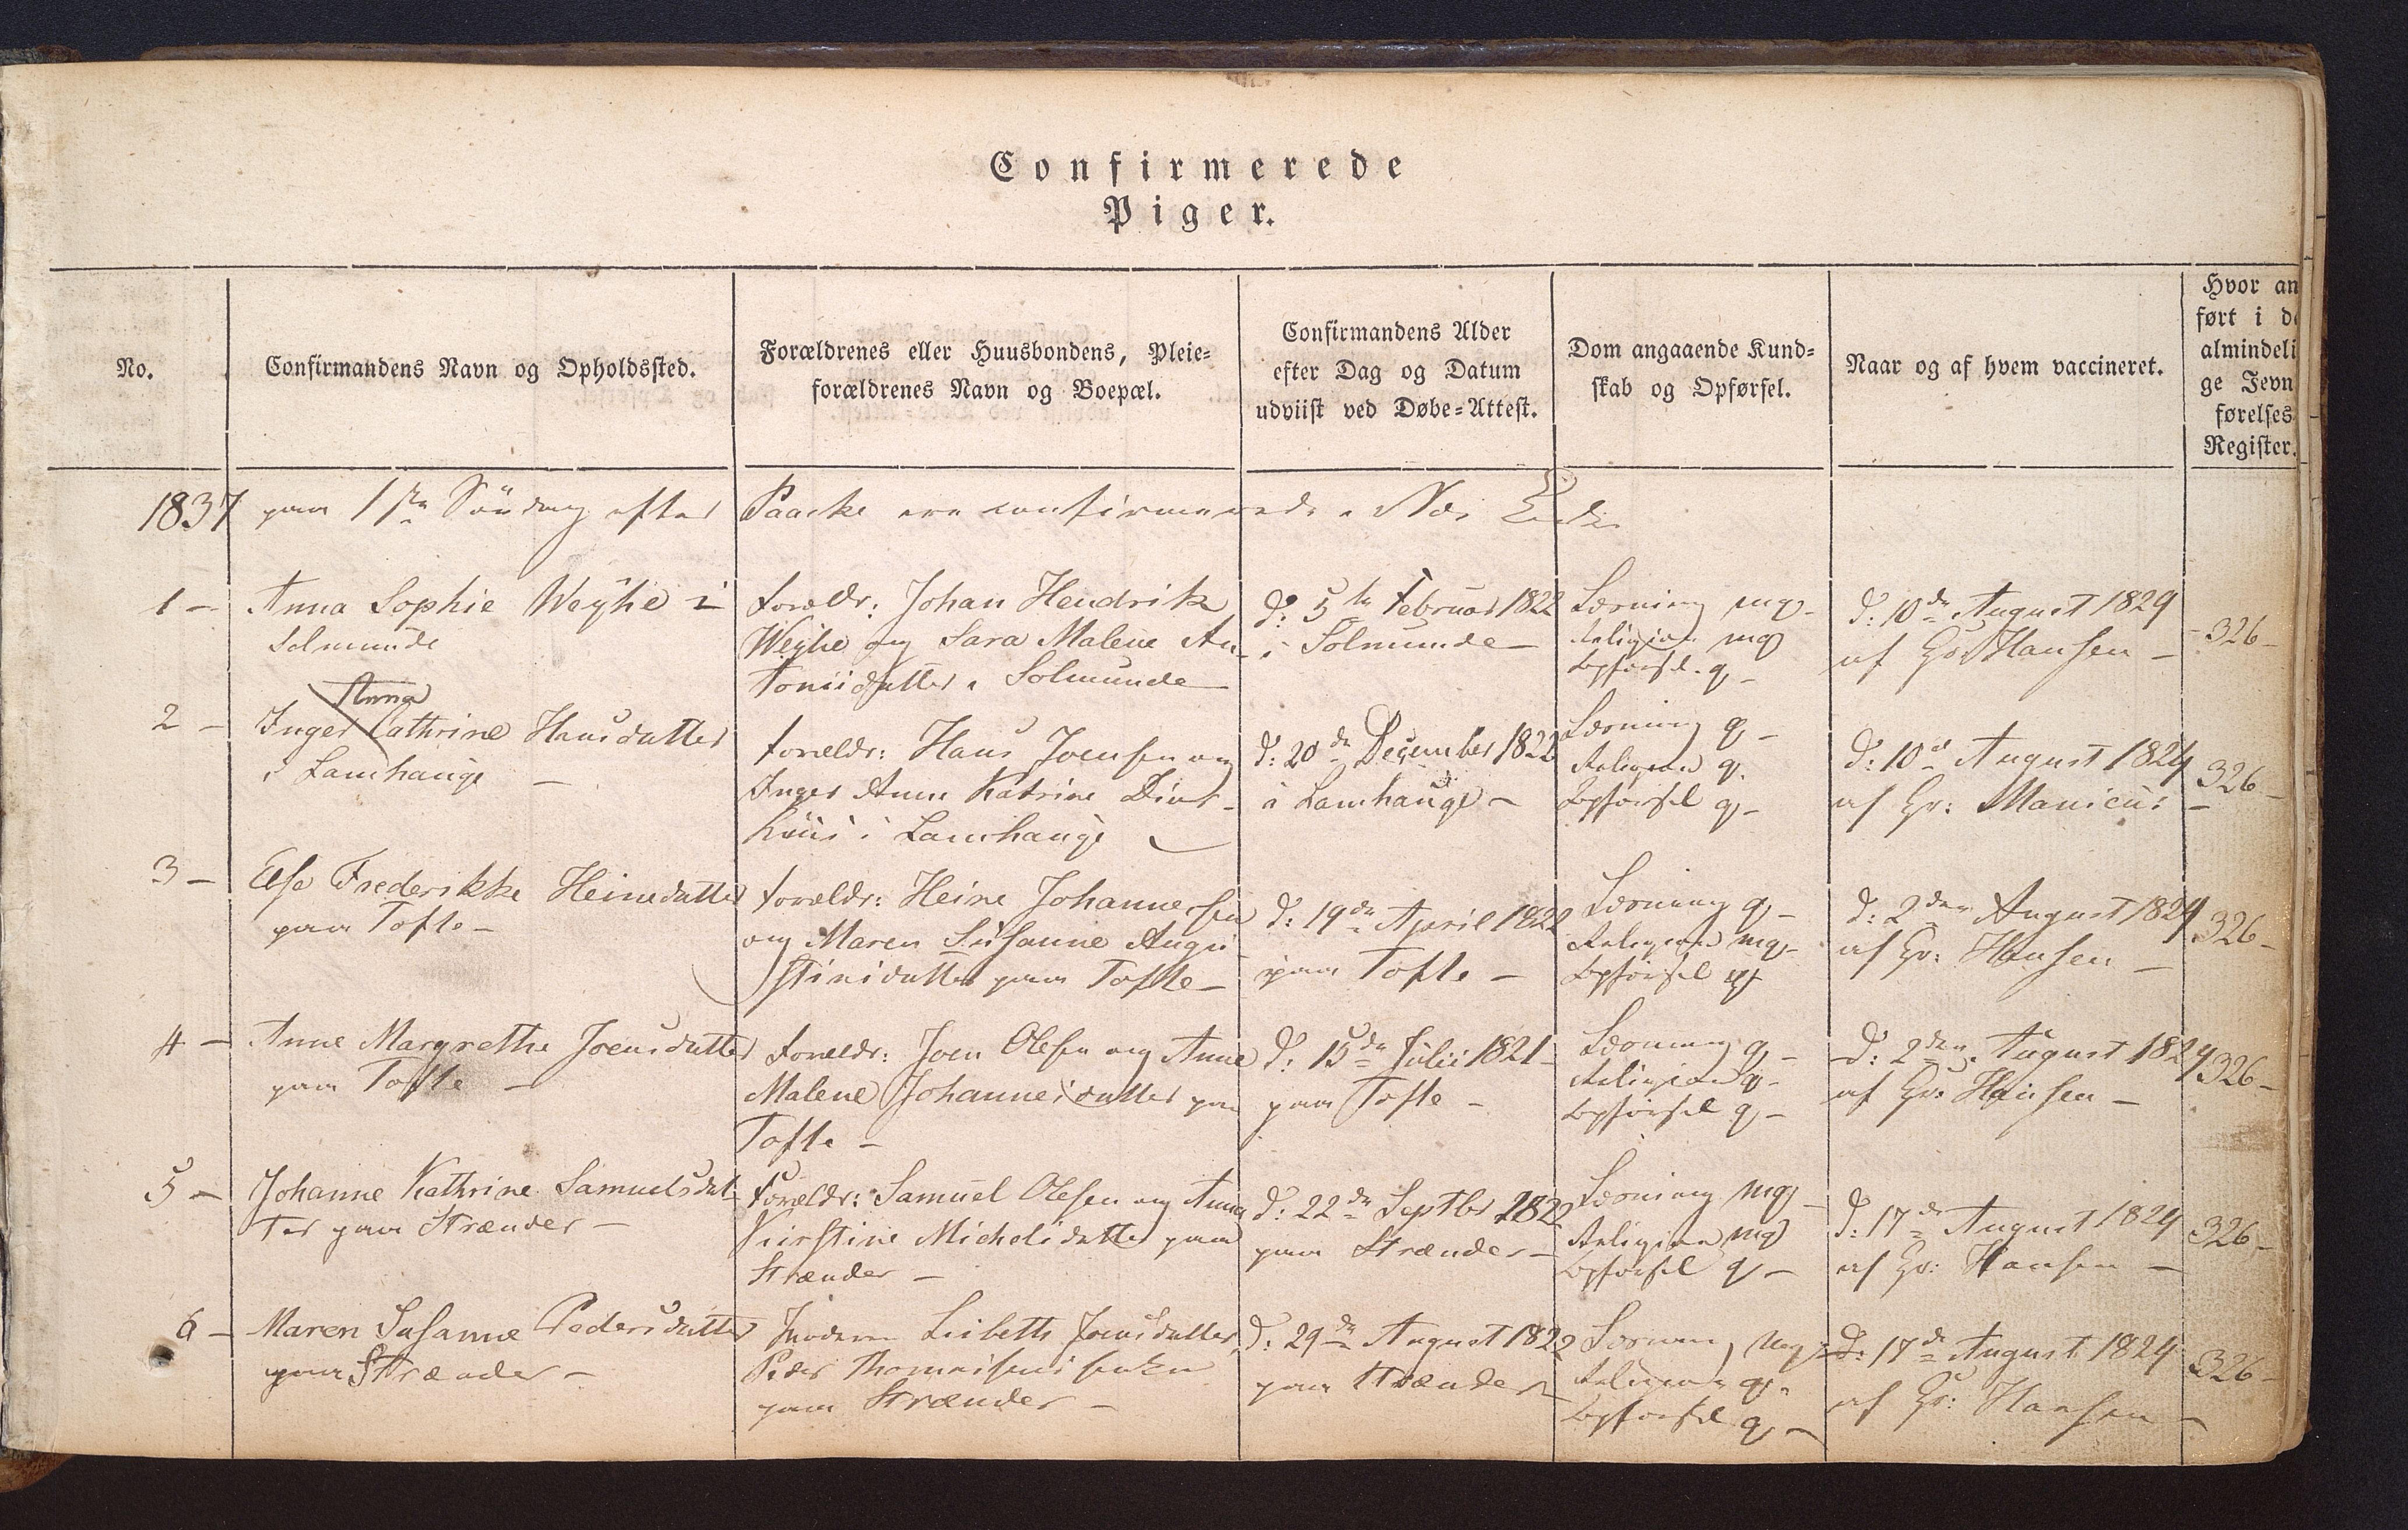 Confirmerede
Piger.
No.
Confirmandens Navn og Opholdssted.
Forældrenes eller Huusbondens, Pleie=
forældrenes Navn og Boepæl.
Confirmandens Alder
efter Dag og Datum
udviist ved Døbe=Attest.
Dom angaaende Kund=
skab og Opførsel.
Naar og af hvem vaccineret.
Hvor an
ført i de
almindeli
ge Jevn
førelses
Register.
1837 paa 1ste Söndag efter Paaske ere confirmerede i Næs
1 –
Anna Sophie Weyhe i
Solmunde
Forældr: Johan Hendrik
Weyhe og Sara Malene An-
toniidatter i Solmunde
d: 5te Februar 1822
i Solmunde –
Læsning mg –
Religion mg
Opförsel g –
d: 10de August 1829
af Hr: Hansen –
– 326 –
2 –
Anna
Inger Cathrine Hansdatter
i Lamhauge –
Forældr: Hans Joensen og
Inger Anne Katrine
i Lamhauge
d: 20de December 1822
i Lamhauge –
Læsning g –
Religion g.
Opförsel g –
d: 10de August 1824
af Hr: Manicus –
326 –
3 –
Else Frederikke Heinedatter
paa Tofte –
Forældr: Heine Johannesen
og Maren Susanne Augu-
stinidatter paa Tofte –
d: 19de April 1822
paa Tofte –
Læsning g –
Religion mg –
Opförsel g
d: 2den August 1824
af Hr: Hansen –
326 –
4 –
Anne Margrethe Joensdatter
paa Tofte –
Forældr: Joen Olesen og Anne
Malene Johannesdatter paa
Tofte –
d: 15de Julii 1821 –
paa Tofte –
Læsning g –
Religion g –
Opförsel g –
d: 2den August 1824
af Hr: Hansen –
326 –
5 –
Johanne Kathrine Samuelsdat-
ter paa Strænder –
Forældr: Samuel Olesen og Anna
Kirstine Michelsdatter paa
Strænder –
d: 22de Septbr 1822
paa Strænder –
Læsning mg –
Religion mg
Opförsel g –
d: 17de August 1824
af Hr: Hansen –
326 –
6 –
Maren Susanne Pedersdatter
paa Strænder –
Moderen Lisbeth Joensdatter
Peder Thomassens Enke
paa Strænder –
d: 29de August 1822
paa Strænder
Læsning mg
Religion g.
Opförsel g –
d: 17de August 1824
af Hr: Hansen –
326 –